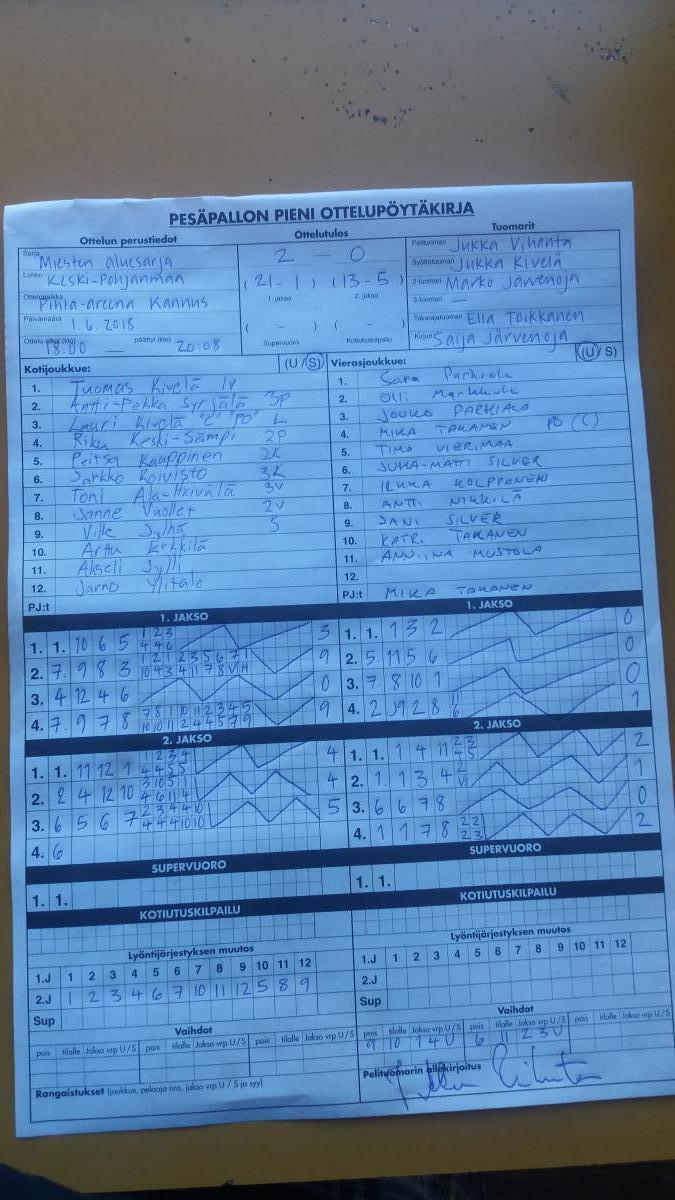 PESÄPALLON PIENI OTTELUPÖYTÄKIRJA
Ottelun perustiedot
Sarja Miesten aluesarja
Lohko Keski-Pohjanmaa
Ottelupaikka Pihla-areena Kannus
Päivämäärä 1.6.2018
Ottelu alkoi (klo) 18:00 — päättyi (klo) 20:08
Ottelutulos
2 – 0
(21-1) (13-5)
1. jakso 2. jakso
( - ) ( - )
Supervuoro Kotiutuskilpailu
Tuomarit
Pelituomari Jukka Vihanta
Syöttötuomari Jukka Kivelä
2-tuomari Marko Järvenoja
3-tuomari —
Takarajatuomari Ella Toikkanen
Kirjuri Saija Järvenoja
Kotijoukkue: (U/S)
1. Tuomas Kivelä lv
2. Antti-Pekka Syrjälä 3P
3. Lauri Kivelä "C" PO L
4. Riku Keski-Sämpi 2P
5. Peitsa Kauppinen 2K
6. Jarkko Koivisto 3K
7. Toni Ala-Hiivälä 3V
8. Janne Vuollet 2V
9. Ville Sylhä S
10. Arttu Erkkilä
11. Akseli Jylli
12. Jarno Ylitalo
PJ:t
Vierasjoukkue: (U/S)
1.
2. Olli
3. JOUKO
4. MIKA TAKANEN PO (C)
5. TIMO VIERIMAA
6. JUKA-MATTI SILVER
7. ILKKA KOLPPANEN
8. ANTTI NIKKILÄ
9. JANI SILVER
10. KATRI TAKANEN
11. ANNIINA MUSTOLA
12.
PJ:t MIKA TAKANEN
1. JAKSO
1. 1. 10 6 5 1 2 3 4 4 6 3
2. 7. 9 8 3 9
3. 4 12 4 6 0
4. 7. 9 7 8 9
1. JAKSO
1. 1. 1 3 2 0
2. 5 11 5 6 0
3. 7. 8 10 1 0
4. 2 9 2 8 1
2. JAKSO
1. 1. 11 12 1 4
2. 2 4 12 10 4
3. 6 5 6 7 5
4. 6
2. JAKSO
1. 1. 1 4 11 2 3 4 5 2
2. 1. 1 3 4 1
3. 6 6 7 8 0
4. 1 1 7 8 2 2 2 3 2
SUPERVUORO
1. 1.
SUPERVUORO
1. 1.
KOTIUTUSKILPAILU
KOTIUTUSKILPAILU
Lyöntijärjestyksen muutos
1.J 1 2 3 4 5 6 7 8 9 10 11 12
2.J 1 2 3 4 6 7 10 11 12 5 8 9
Sup
Lyöntijärjestyksen muutos
1.J 1 2 3 4 5 6 7 8 9 10 11 12
2.J
Sup
Vaihdot
pois tilalle Jakso vrp U/S pois tilalle Jakso vrp U/S pois tilalle Jakso vrp U/S
Vaihdot
pois tilalle Jakso vrp U/S pois tilalle Jakso vrp U/S pois tilalle Jakso vrp U/S
9 10 1 4 U 6 11 2 3 U
Rangaistukset (joukkue, pelaaja nro, jakso vrp U / S ja syy)
Pelituomarin allekirjoitus